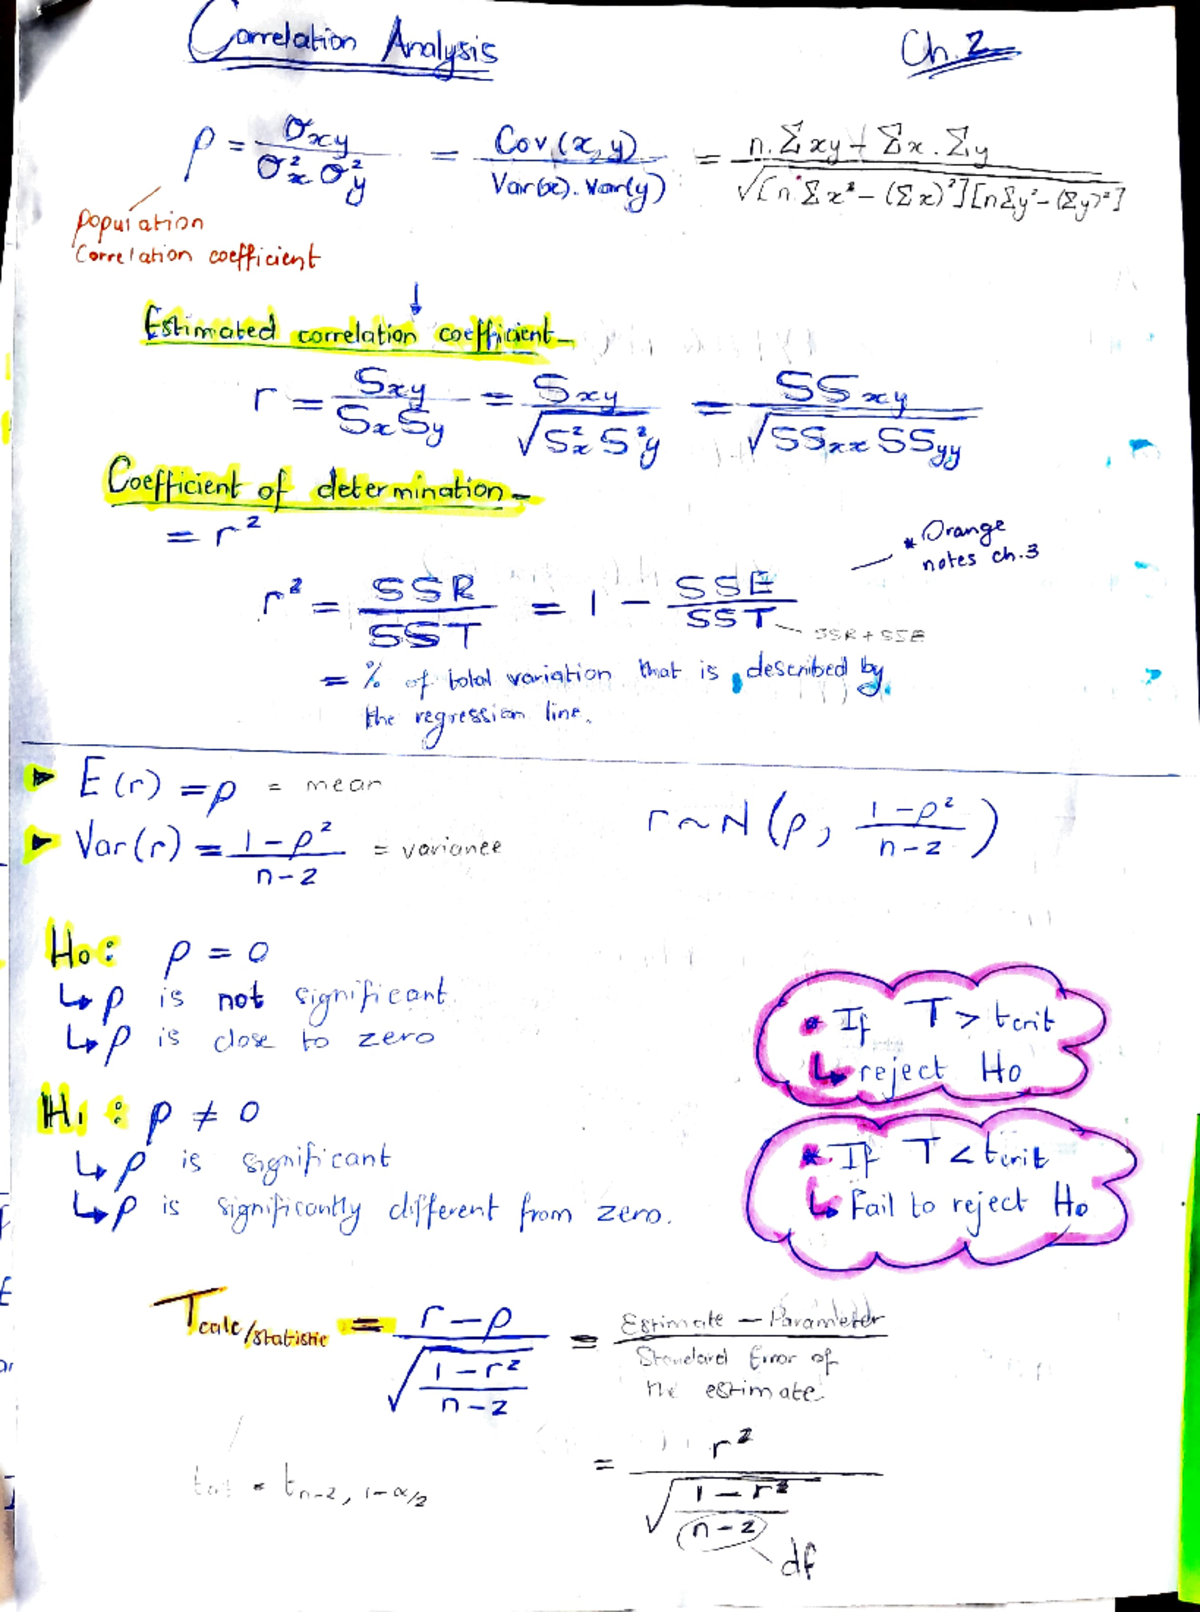 Correlation Analysis Ch.2
ρ = σxy / σ²x σ²y = Cov(x,y) / Var(x).Var(y) = n.Σxy - Σx.Σy / √[n.Σx² - (Σx)²][nΣy² - (Σy)²]
population
Correlation coefficient
↓
Estimated correlation coefficient
r = Sxy / SxSy = Sxy / √S²x S²y = SSxy / √SSxx SSyy
Coefficient of determination
= r²
* Orange
notes ch.3
r² = SSR / SST = 1 - SSE / SST
SSR + SSE
= % of total variation that is described by
the regression line.
▶ E(r) = ρ = mean
▶ Var(r) = 1-ρ² / n-2 = variance
r ~ N(ρ, 1-ρ² / n-2)
Ho: ρ = 0
↳ ρ is not significant
↳ ρ is close to zero
H1: ρ ≠ 0
↳ ρ is significant
↳ ρ is significantly different from zero.
* If T > tcrit
↳ reject Ho
* If T < tcrit
↳ Fail to reject Ho
Tcalc/statistic = r-ρ / √(1-r² / n-2) = Estimate - Parameter / Standard Error of
the estimate
= r² / √(1-r² / n-2)
df
tcrit = tn-2, 1-α/2